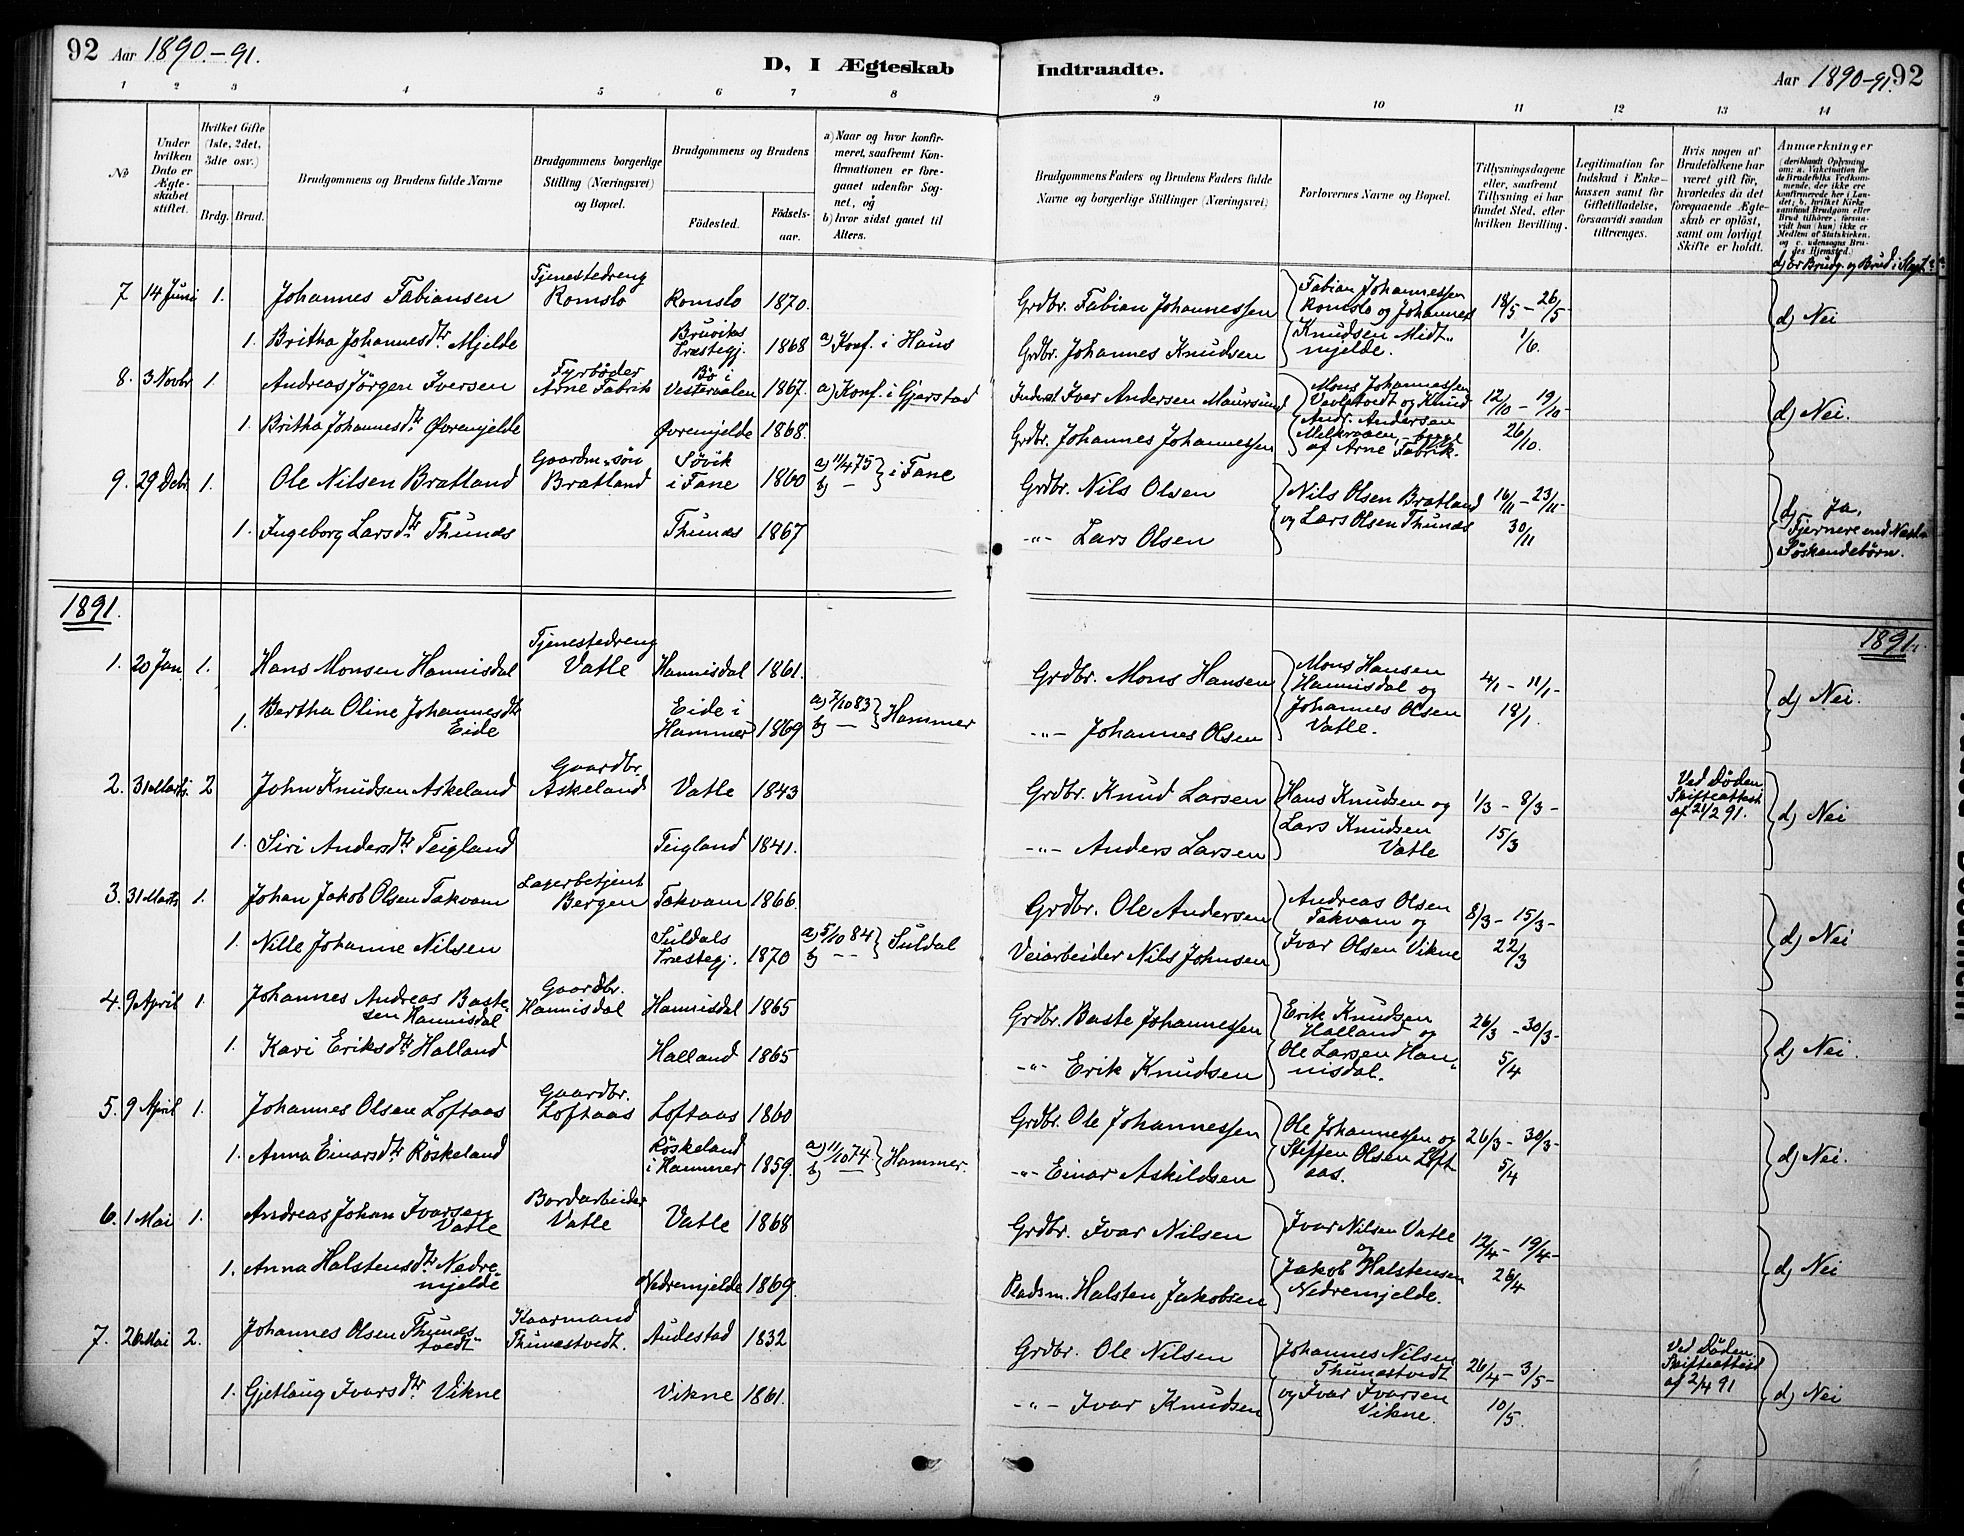 92 Aar 1890.-91.
D, I Ægteskab Indtraadte.
Aar 1890-91. 92
1 2 3 4 5 6 7 8 9 10 11 12 13 14
No
Under hvilken Dato er Ægteskabet stiftet.
Hvilket Gifte (1ste, 2det, 3die osv.)
Brdg. Brud.
Brudgommens og Brudens fulde Navne
Brudgommens borgerlige Stilling (Næringsvei) og Bopæl.
Brudgommens og Brudens
Fødested. Fødselsaar.
a) Naar og hvor konfirmeret, saafremt Konfirmationen er foregaaet udenfor Sognet, og
b) hvor sidst gaaet til Alters.
Brudgommens Faders og Brudens Faders fulde Navne og borgerlige Stillinger (Næringsvei)
Forlovernes Navne og Bopæl.
Tillysningsdagene eller, saafremt Tillysning ei har fundet Sted, efter hvilken Bevilling.
Legitimation for Indskud i Enkekassen samt for Giftetilladelse, forsaavidt saadan tiltrænges.
Hvis nogen af Brudefolkene har været gift før, hvorledes da det foregaaende Ægteskab er opløst, samt om lovligt Skifte er holdt.
Anmærkninger
(deriblandt Oplysning om: a. Vakcination for de Brudefolks Vedkommende, der ikke ere konfirmerede her i Landet; b. hvilket Kirkesamfund Brudgom eller Brud tilhører, forsaavidt han (hun) ikke er Medlem af Statskirken, og c. udensogns Brudes Hjemsted.)
d) Er Brudg. og Brud i Slægt?
7 14 Juni 1. Johannes Fabiansen Tjenestedreng Romslo Romslo 1870. Grdbr. Fabian Johannessen Fabian Johannessen Romslo og Johannes Knudsen Midtmjelde. 18/5 - 26/5 - 1/6. d) Nei
1. Britha Johannesdtr Mjelde Bruviks Præstegj. 1868 a) Konf. i Haus Grdbr. Johannes Knudsen
8. 3 Novbr 1. Andreas Jörgen Iversen Fyrböder Arne Fabrik Bö i Vesteraalen 1867. a) Konf. i Gjerstad Inderst Iver Andersen Maursund Mons Johannessen og Knud Andr. Andersen af Arne Fabrik. 12/10 - 19/10 - 26/10. d) Nei.
1. Britha Johannesdtr Øvremjelde Øvremjelde 1868. Grdbr. Johannes Johannessen
9. 29 Debr. 1. Ole Nilsen Bratland Gaardm.sön Bratland Søvik i Fane 1860 a) 11/4 75 b) — i Fane Grdbr. Nils Olsen Nils Olsen Bratland og Lars Olsen Thunæs 16/11 - 23/11 - 30/11 d) Ja, Fjernere end Næst Söskendebörn.
1. Ingeborg Larsdtr Thunæs Thunæs 1867 -"- Lars Olsen
1891. 1891.
1. 20 Jan 1. Hans Monsen Hannisdal Tjenestedreng Vatle Hannisdal 1861. Grdbr. Mons Hansen Mons Hansen Hannisdal og Johannes Olsen Vatle. 4/1 - 11/1 - 18/1. d) Nei.
1. Bertha Oline Johannesdtr Eide Eide i Hammer 1869 a) 7/10 83 b) — Hammer -"- Johannes Olsen
2. 31 Marts. 2 John Knudsen Askeland Gaardbr. Askeland Vatle 1843 Grdbr. Knud Larsen Hans Knudsen og Lars Knudsen Vatle 1/3 - 8/3 - 15/3 Ved Döden Skifteattest af 21/2 91. d) Nei
1. Siri Andersdtr Teigland Teigland 1841. -"- Anders Larsen
3. 31 Marts 1. Johan Jakob Olsen Takvam Lagerbetjent Bergen Takvam 1866. Grdbr. Ole Andersen Andreas Olsen Takvam og Ivar Olsen Vikne 8/3 - 15/3 - 22/3 d) Nei
1. Nille Johanne Nilsen Suldals Præstegj. 1870 a) 5/10 84 b) -- Suldal Veiarbeider Nils Johnsen
4. 9 April 1. Johannes Andreas Bastesen Hannisdal Gaardbr. Hannisdal Hannisdal 1865 Grdbr. Baste Johannessen Erik Knudsen Halland og Ole Larsen Hannisdal. 26/3 - 30/3 - 5/4 d) Nei.
1. Kari Eriksdtr Halland Halland 1865 -"- Erik Knudsen
5. 9 April 1. Johannes Olsen Loftaas Gaardbr. Loftaas Loftaas 1860 Grdbr. Ole Johannessen Ole Johannessen og Steffen Olsen Loftaas. 26/3 - 30/3 - 5/4 d) Nei.
1. Anna Einarsdtr Röskeland Röskeland i Hammer 1859. a) 11/10 74. b) — Hammer. -"- Einar Askildsen
6. 1 Mai 1. Andreas Johan Ivarsen Vatle Bordarbeider Vatle Vatle 1868 Grdbr. Ivar Nilsen Ivar Nilsen Vatle og Jakob Halstensen Nedremjelde. 12/4 - 19/4 - 26/4 d) Nei
1. Anna Halstensdtr Nedremjelde Nedremjelde 1869. Pladsm. Halsten Jakobsen
7. 26 Mai 2. Johannes Olsen Thunæstvedt Kaarmand Thunæstvedt. Audestad 1832 Grdbr. Ole Nilsen Johannes Nilsen Thunæstvedt og Ivar Ivarsen Vikne. 26/4 - 3/5 - 10/5. Ved Döden. Skifteattest af 2/4 91 d) Nei
1. Gjetlaug Ivarsdtr Vikne Vikne 1861. -"- Ivar Knudsen